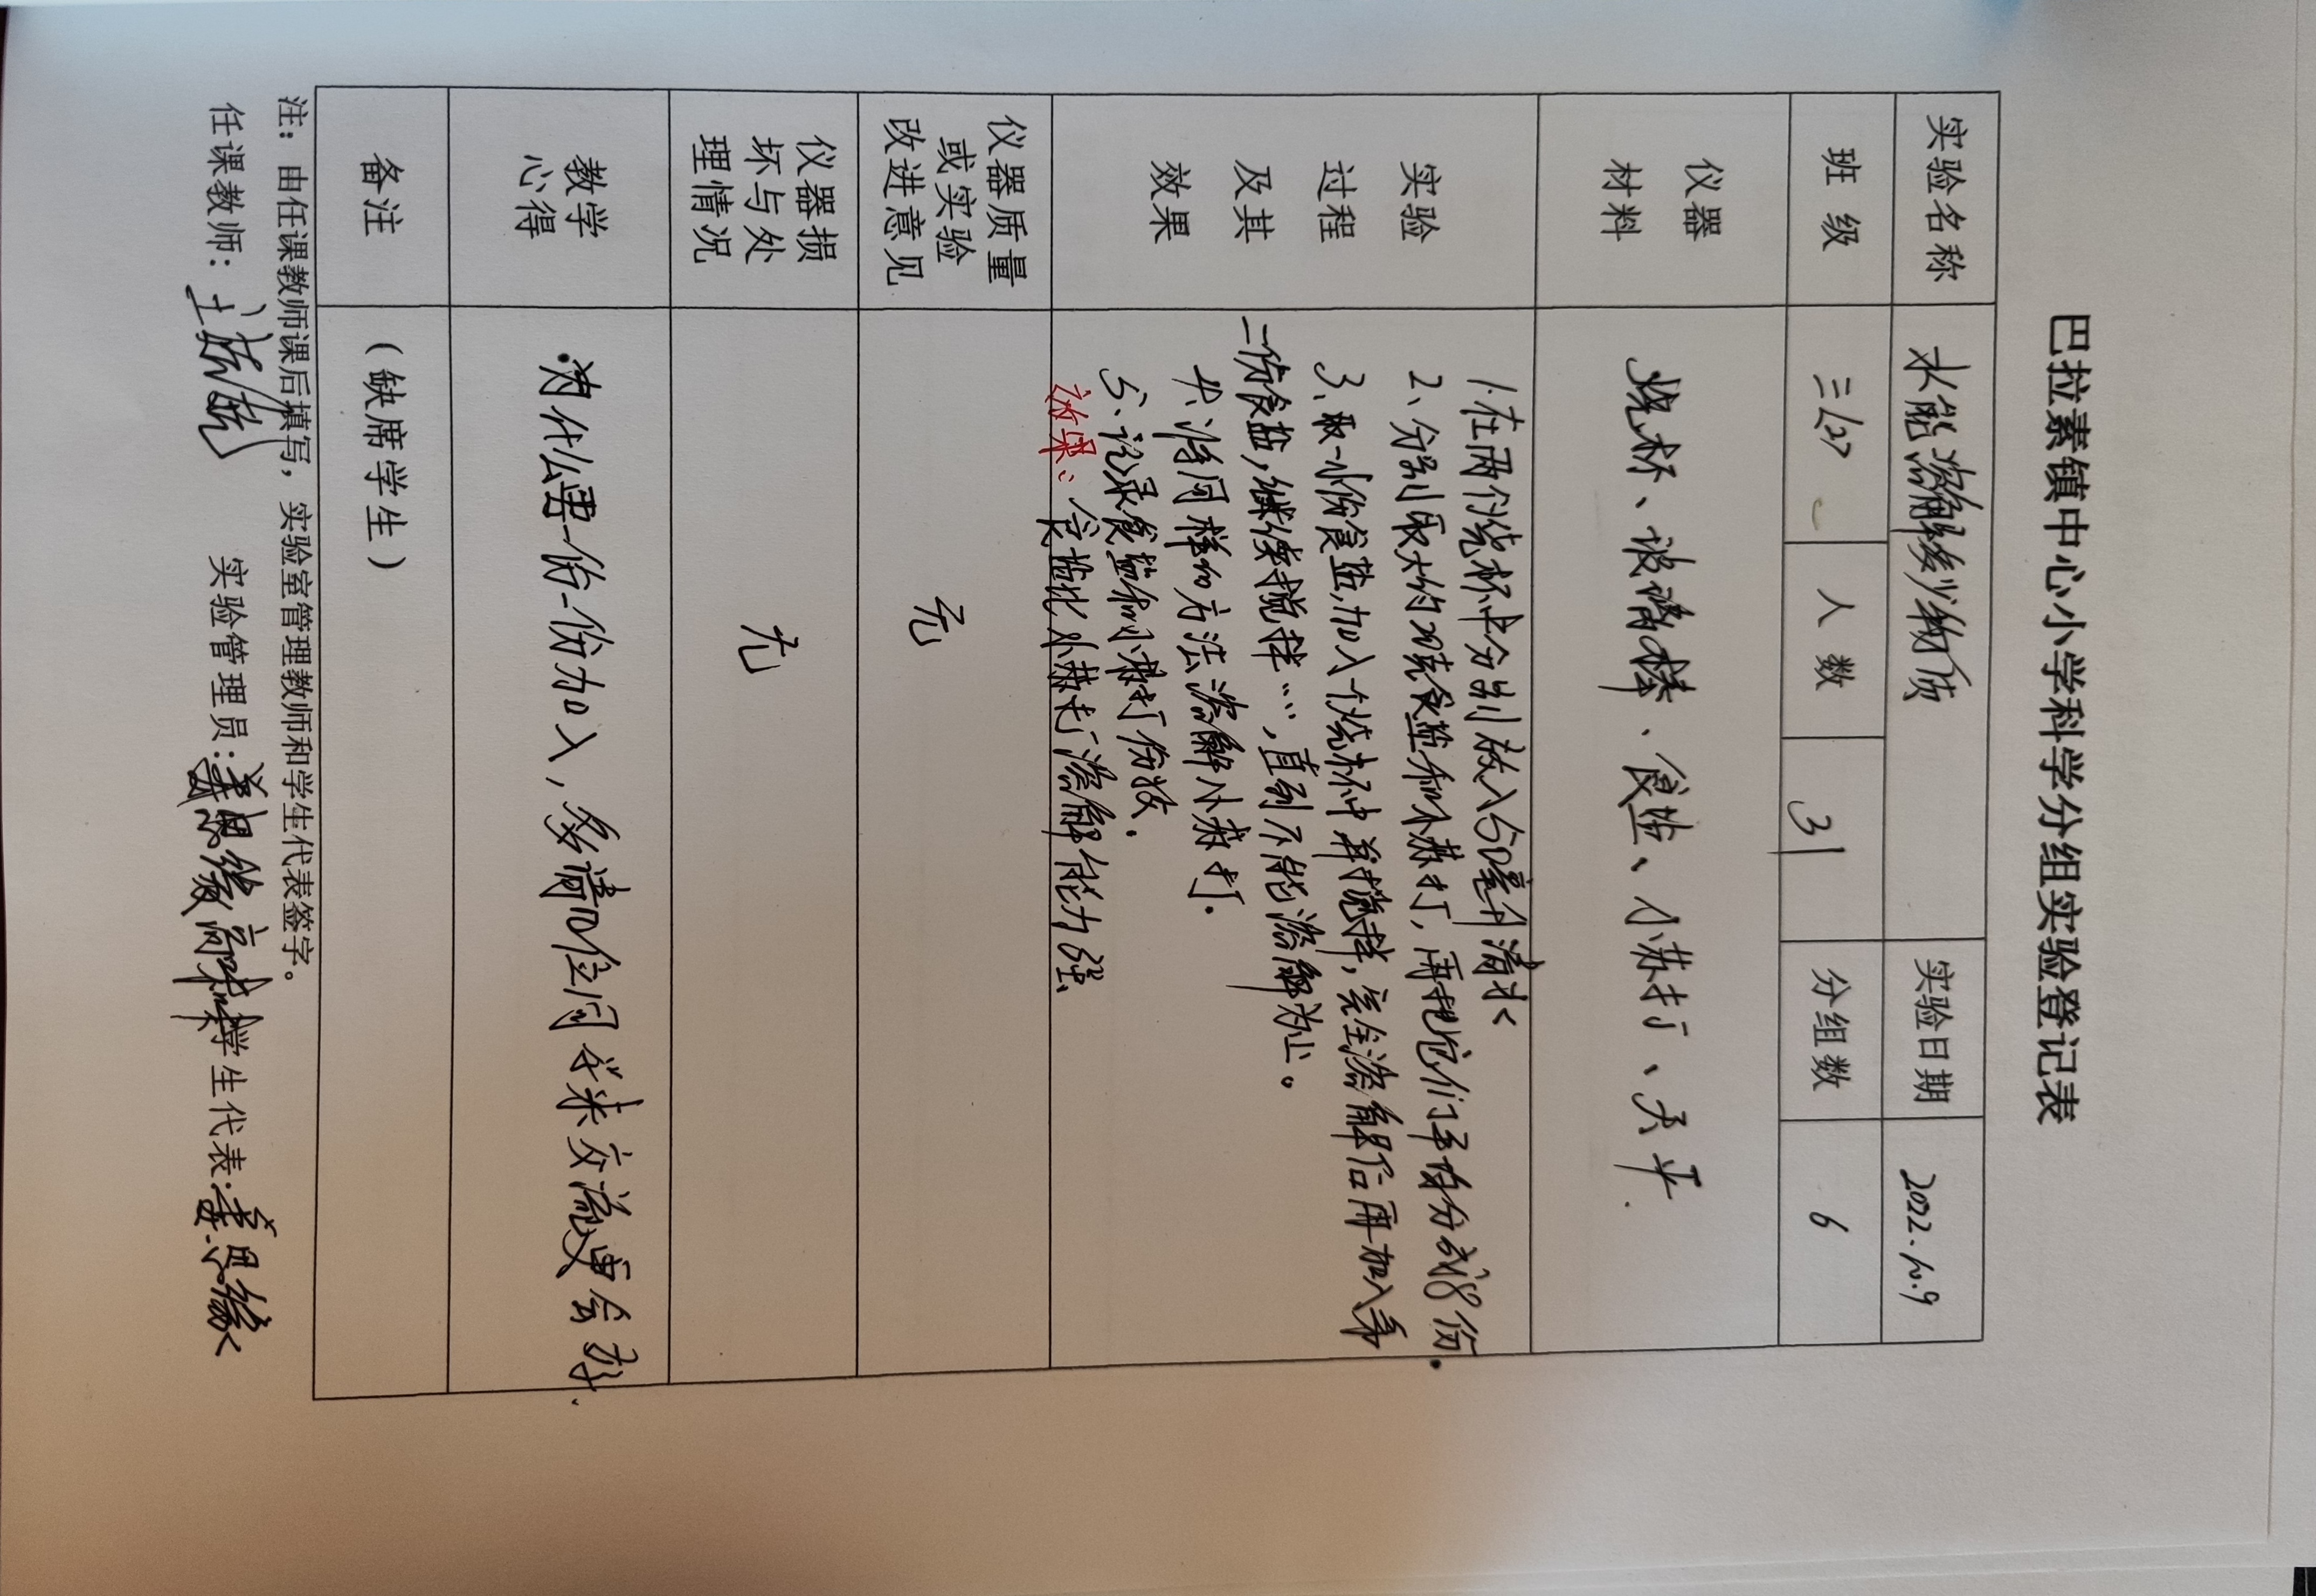 巴拉素镇中心小学科学分组实验登记表
实验名称 水能溶解多少物质 实验日期 2022.10.9
班 级 三(2) 人 数 31 分组数 6
仪器
材料
烧杯、玻璃棒、食盐、小苏打、天平.
实验
过程
及其
效果
1.在两个烧杯中分别放入50毫升清水
2、分别取大约20克食盐和小苏打,再把它们平均分成8份.
3、取一小份食盐,加入一个烧杯中并搅拌,完全溶解后再加入第
二份食盐,继续搅拌…,直到不能溶解为止。
4、将同样的方法溶解小苏打.
5、记录食盐和小苏打份数.
效果:食盐比小苏打溶解能力强
仪器质量
或实验
改进意见
无
仪器损
坏与处
理情况
无
教学
心得
为什么要一份一份加入,多请几位同学来交流更会好.
备注
(缺席学生)
注:由任课教师课后填写,实验室管理教师和学生代表签字。
任课教师: 实验管理员: 学生代表: